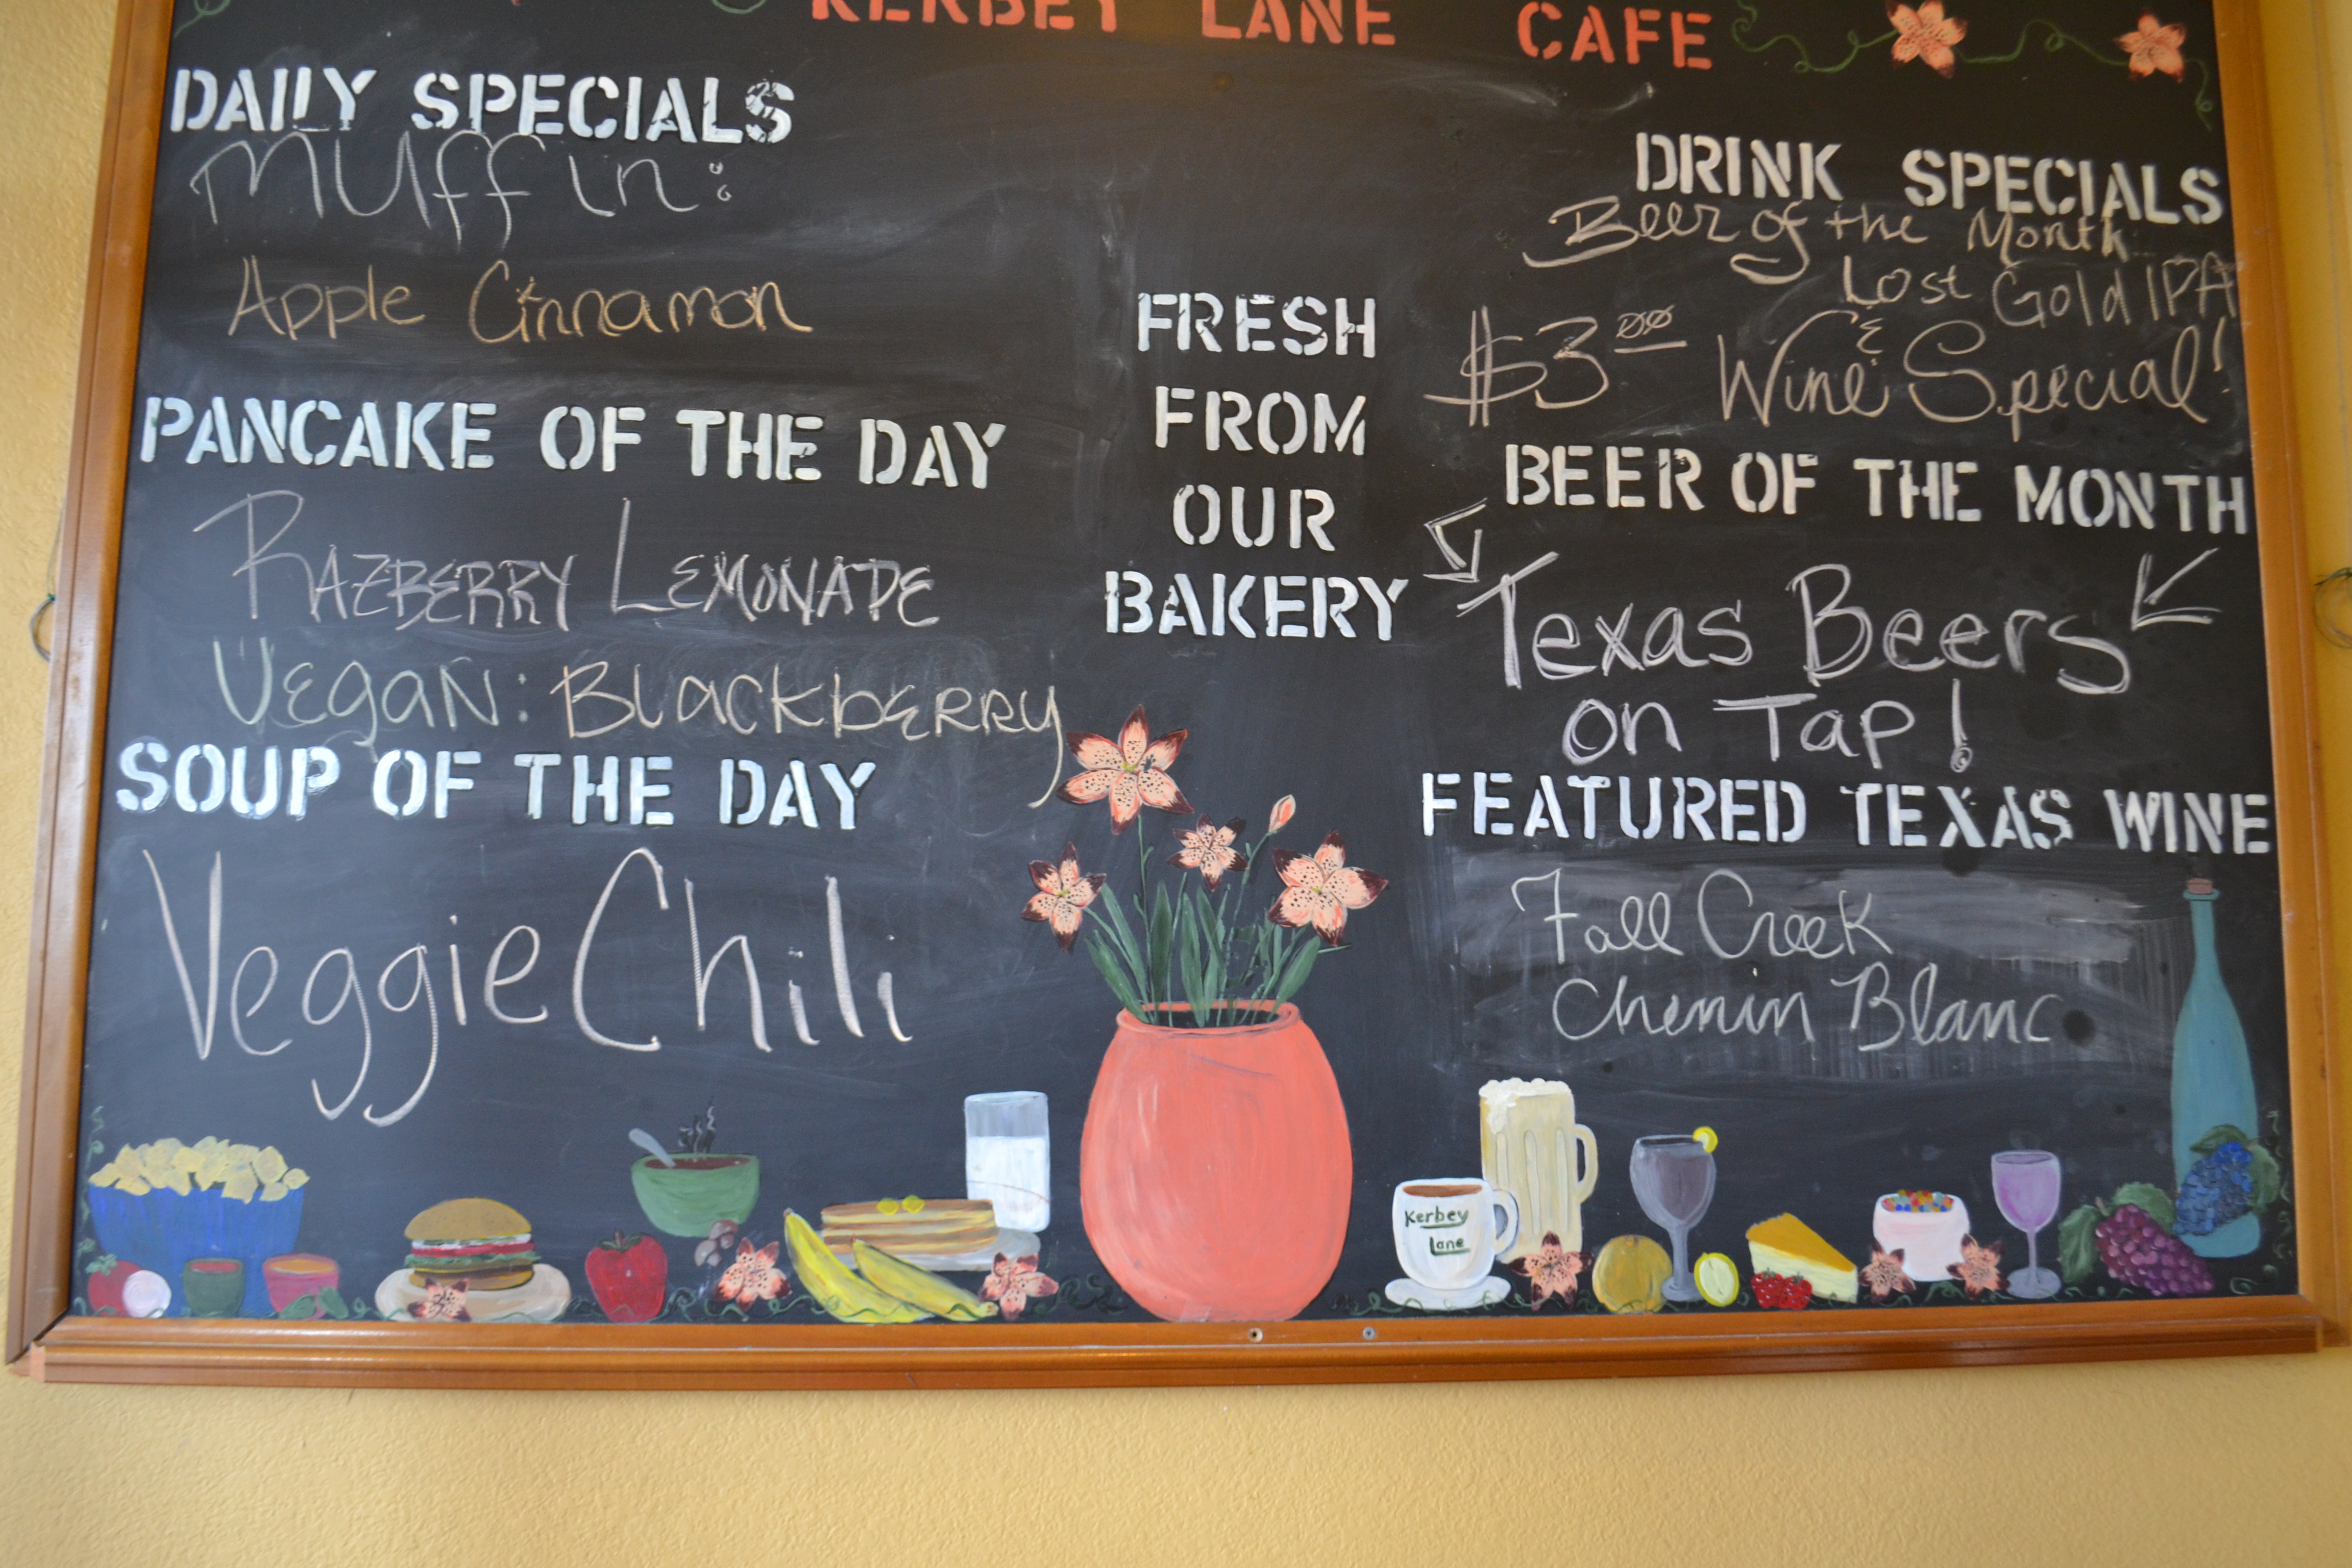 KERBEY LANE CAFE
DAILY SPECIALS
Muffin:
Apple Cinnamon
PANCAKE OF THE DAY
RAZBERRY LEMONADE
VEgAN: BlackbERRy
SOUP OF THE DAY
Veggie Chili
FRESH
FROM
OUR
BAKERY
DRINK SPECIALS
Beer of the Month
Lost Gold IPA
&
$3.00 Wine Special!
BEER OF THE MONTH
Texas Beers
on Tap!
FEATURED TEXAS WINE
Fall Creek
Chenin Blanc
Kerbey
Lane